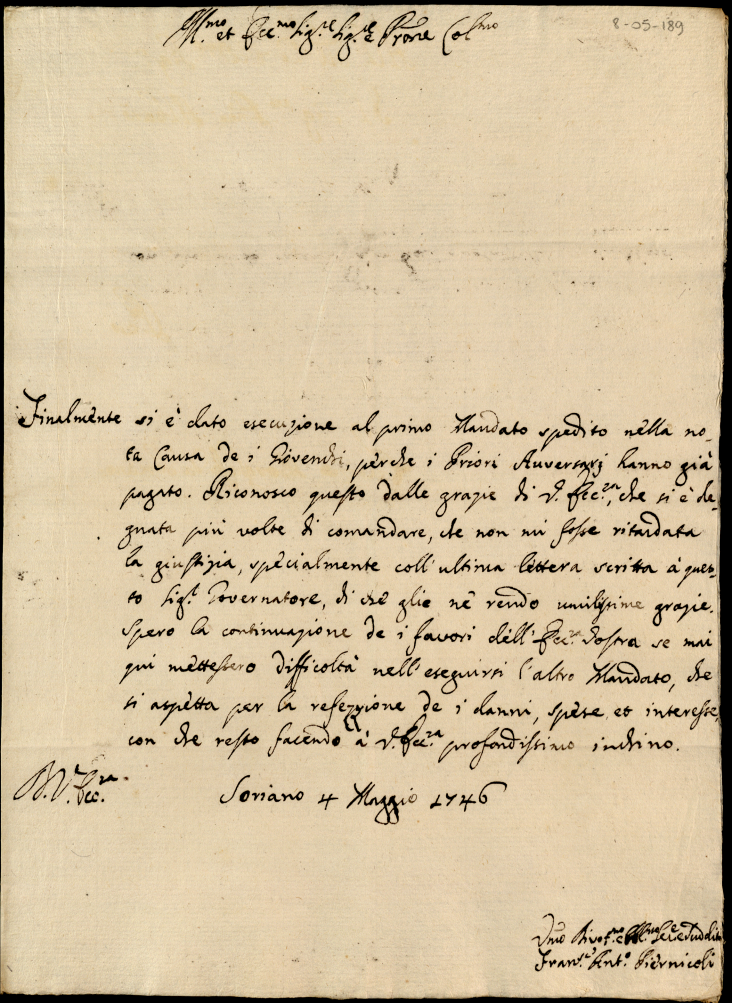 Ill.mo et Ecc.mo Sig.re Sig.re e Prone Col.mo
8-05-189
Finalmente si è dato esecuzione al primo Mandato spedito nella no-
ta Causa de i Giovenchi, perche i Priori Auversarj hanno già
pagato. Riconosco questo dalle grazie di V. Ecc.za, che si è de-
gnata più volte di comandare, che non mi fosse ritardata
la giustizia, specialmente coll'ultima lettera scritta à ques-
to Sig.r Governatore, di che glie nè rendo umilissime grazie.
Spero la continuazione de i favori dell'Ecc.za Vostra se mai
qui mettessero difficoltà nell'eseguirsi l'altro Mandato, che
si aspetta per la refezzione de i danni, spese et interesse,
con che resto facendo à V. Ecc.za profondissimo inchino.
D. V. Ecc.za
Soriano 4 Maggio 1746
Vmo Divot.mo
Fran.co Ant.o Piernicoli